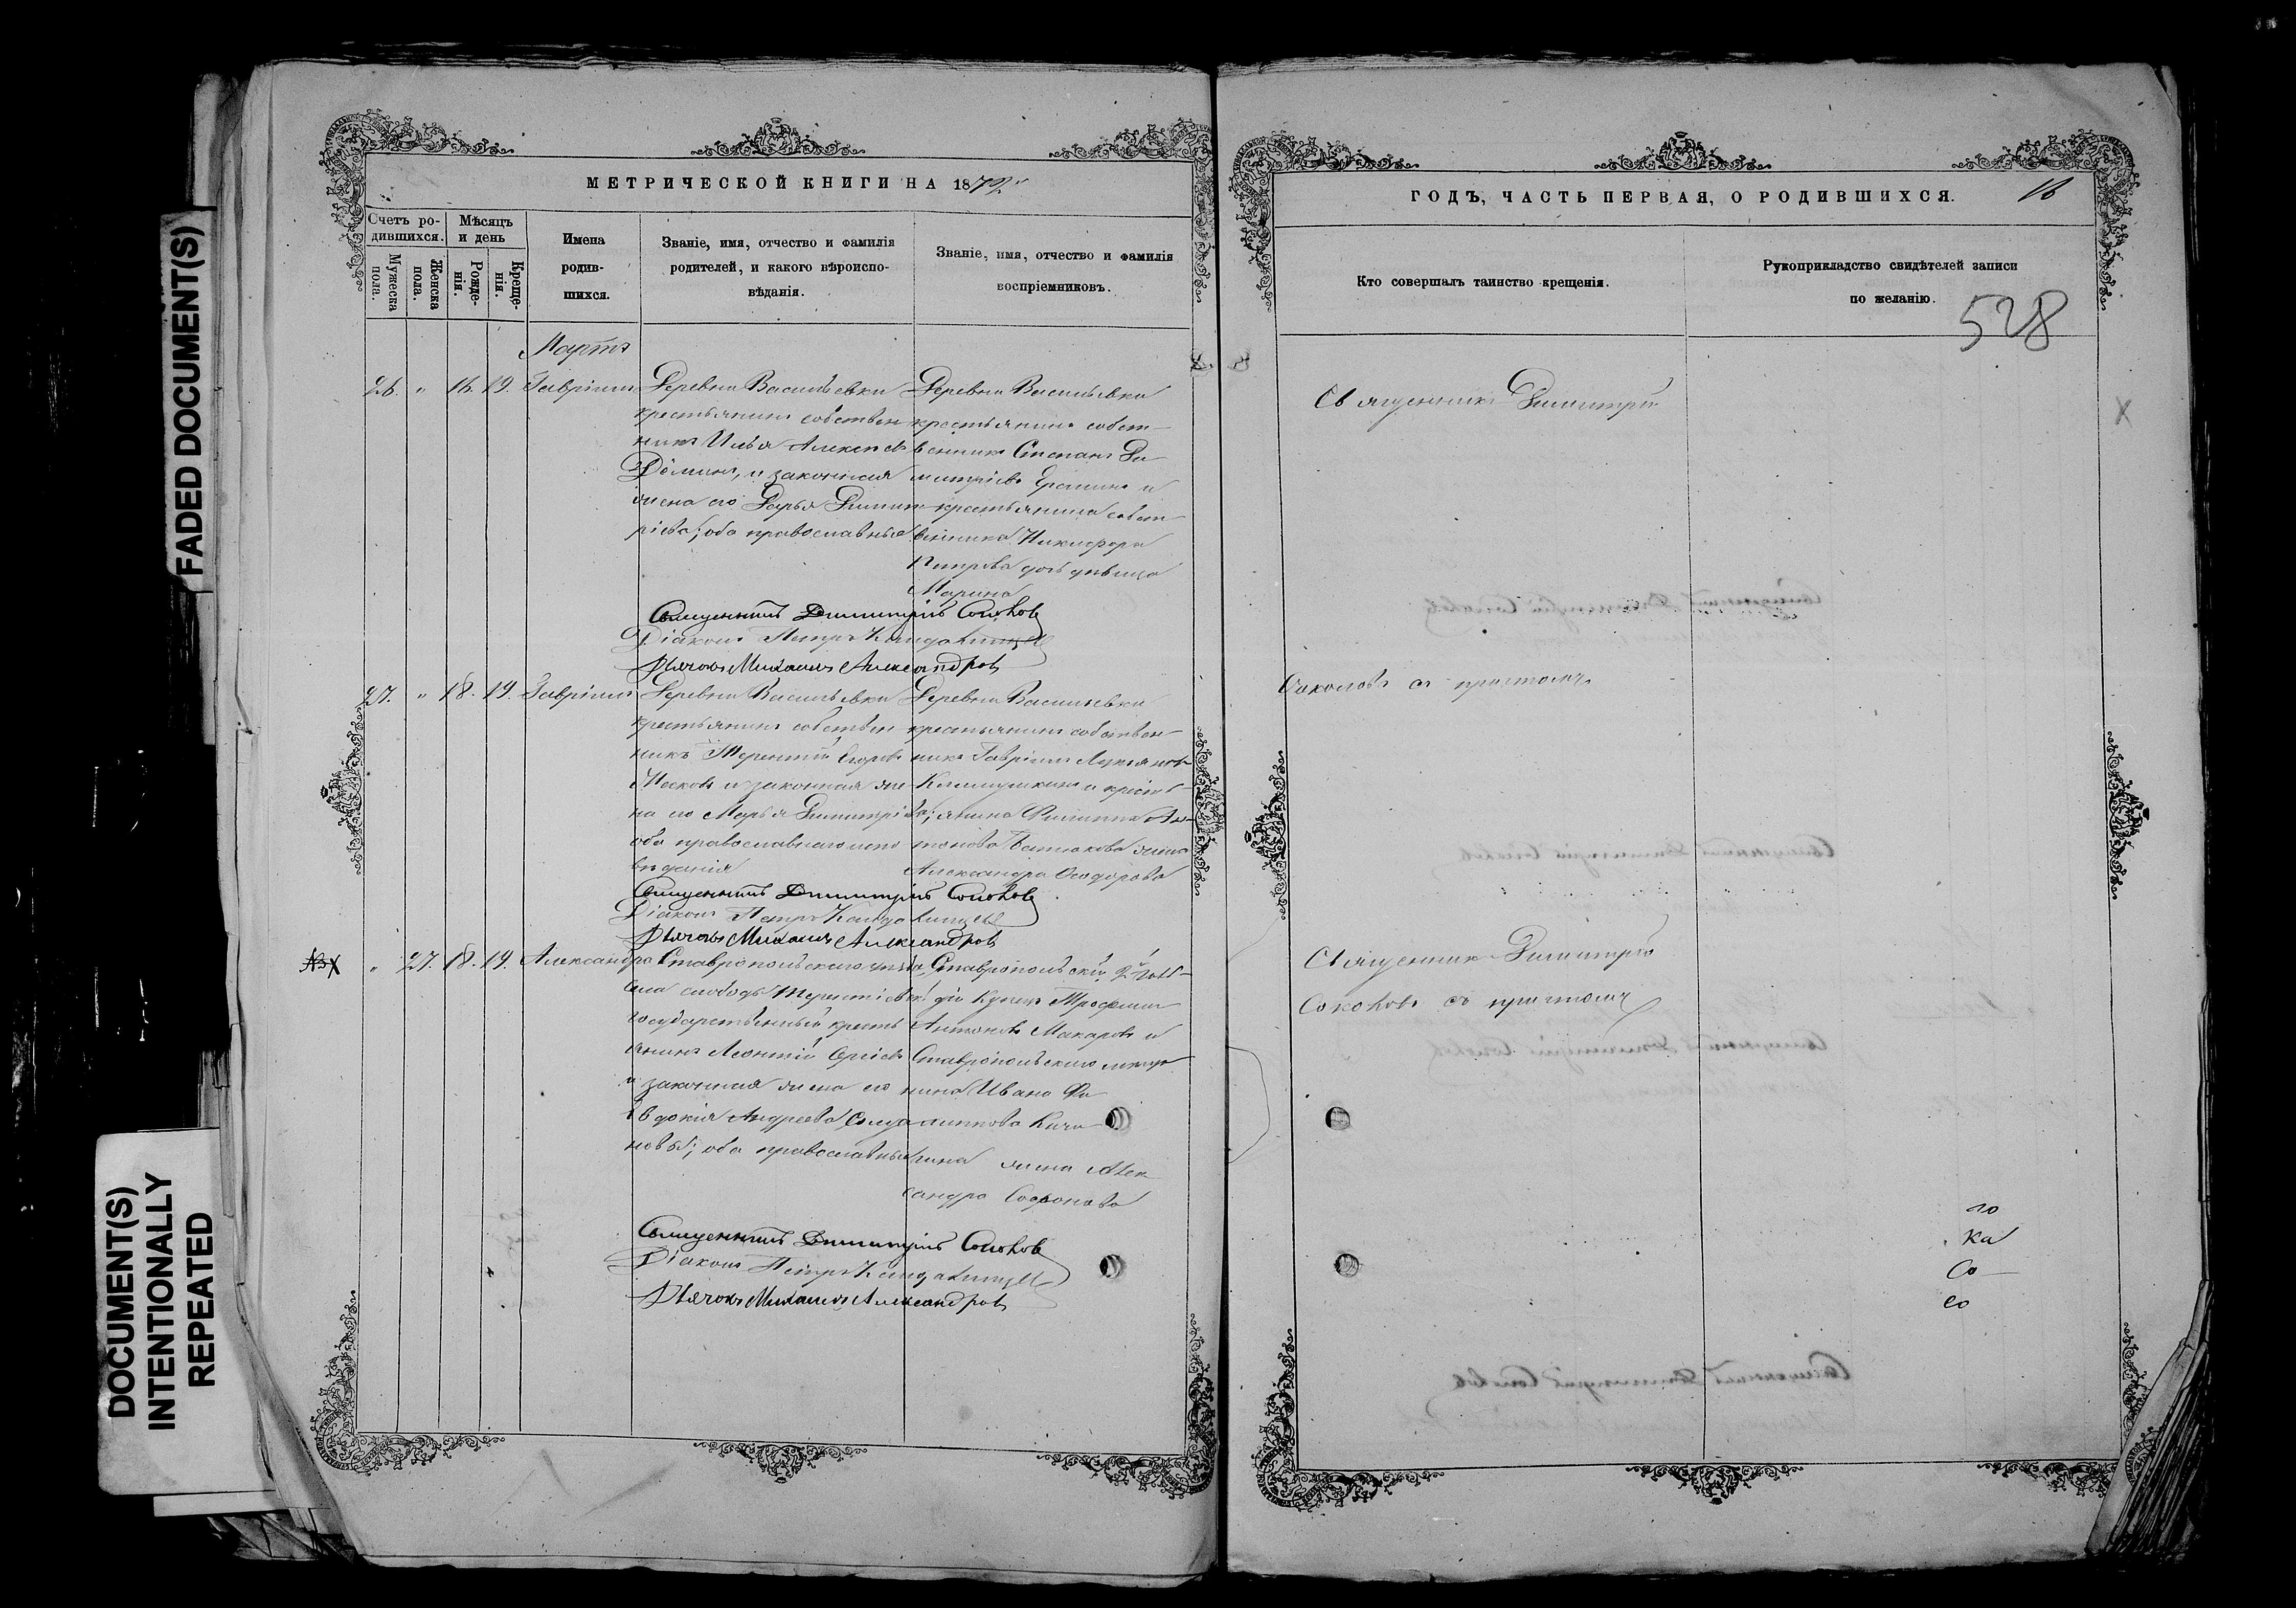 FADED DOCUMENT(S)
DOCUMENT(S)
INTENTIONALLY
REPEATED
МЕТРИЧЕСКОЙ КНИГИ НА 1879
Счетъ ро-
дившихся.
Мужеска
пола.
Женска
пола.
Мѣсяцъ
и день
Рожде-
нія.
Креще-
нія.
Имена
родив-
шихся.
Званіе, имя, отчество и фамилія
родителей, и какого вѣроиспо-
вѣданія.
Званіе, имя, отчество и фамилія
воспріемниковъ.
Мартъ
26. " 16. 19. Гавріилъ
Деревни Васильевки
крестьянинъ собствен-
никъ Илья Алексѣевъ
Дёминъ, и законная
жена его Дарья Димит-
ріева; оба православные
Деревни Васильевки
крестьянинъ собст-
венникъ Степанъ Ди-
митріевъ и
крестьянина собст-
венника Никифора
Петрова дочь дѣвица
Марина
Священникъ Димитрій Соколовъ
Діаконъ Петръ
Дьячокъ Михаилъ Александровъ
27. " 18. 19. Гавріилъ
Деревни Васильевки
крестьянинъ собствен
никъ Терентій Егоровъ
и законная же-
на его Марья Димитріева;
оба православнаго испо
вѣданія
Деревни Васильевки
крестьянинъ собствен-
никъ Гавріилъ Лукьяновъ
и кресть-
янина Филиппа Ан-
тонова жена
Александра Ѳеодорова
Священникъ Димитрій Соколовъ
Діаконъ Петръ
Дьячокъ Михаилъ Александровъ
" 27. 18. 19. Александра
Ставропольскаго уѣзда,
села слободы
государственный кресть
янинъ Леонтій Сергіевъ
и законная жена его
Евдокія Андреева
оба православные
Ставропольскій 2й гиль-
діи купецъ Трофимъ
Антоновъ Макаровъ и
Ставропольскаго мѣща-
нина Ивана Фи
липпова
жена Алек
сандра Софронова
Священникъ Димитрій Соколовъ
Діаконъ Петръ
Дьячокъ Михаилъ Александровъ
ГОДЪ, ЧАСТЬ ПЕРВАЯ, О РОДИВШИХСЯ.
16
Кто совершалъ таинство крещенія.
Рукоприкладство свидѣтелей записи
по желанію.
528
Священникъ Димитрій
Соколовъ съ причтомъ
Священникъ Димитрій
Соколовъ съ причтомъ
го
ка
Со
со